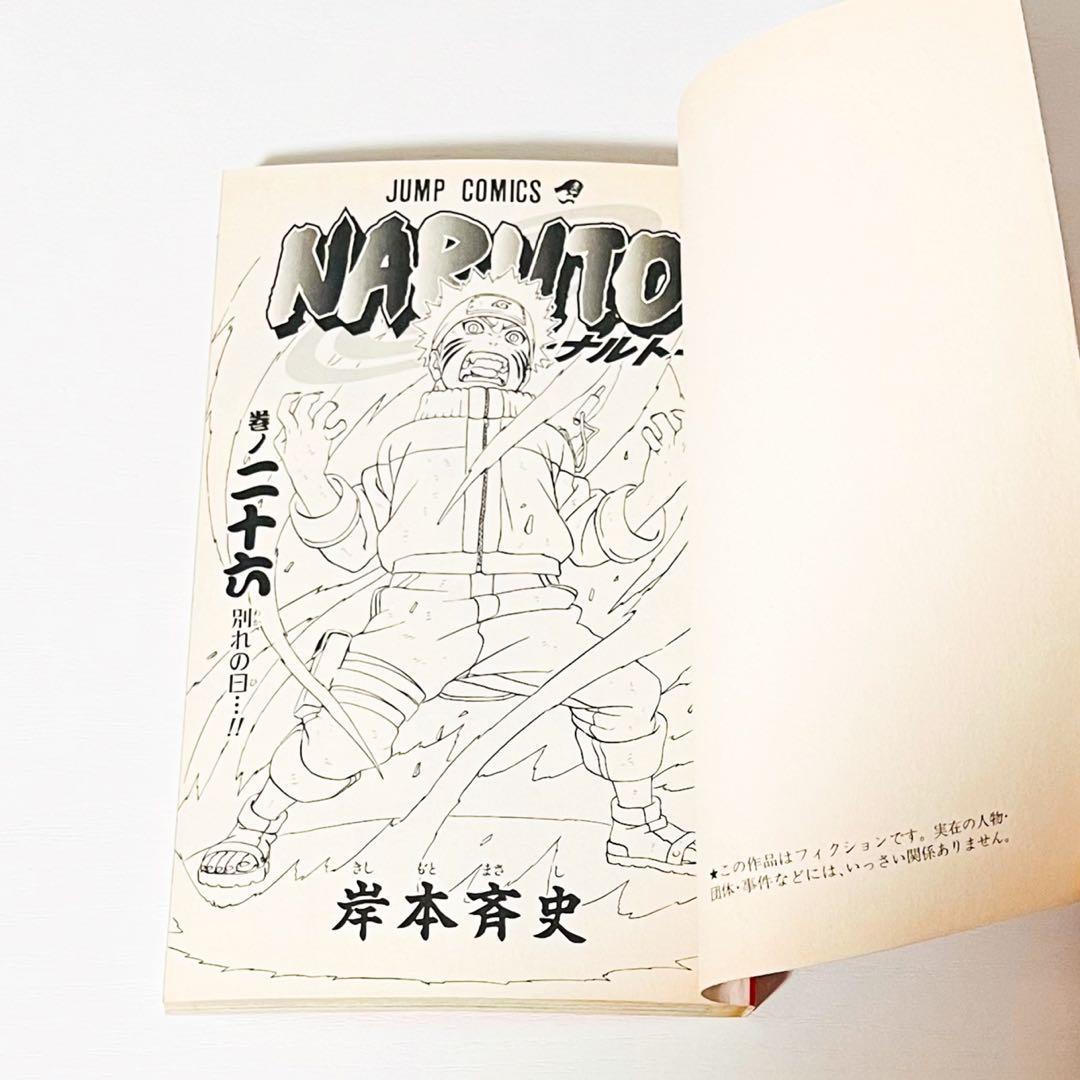 JUMP COMICS
NARUTO
-ナルト-
巻ノ二十六
別れの日…!!
わか ひ
岸本斉史
きし もと まさ し
★この作品はフィクションです。実在の人物・
団体・事件などには、いっさい関係ありません。